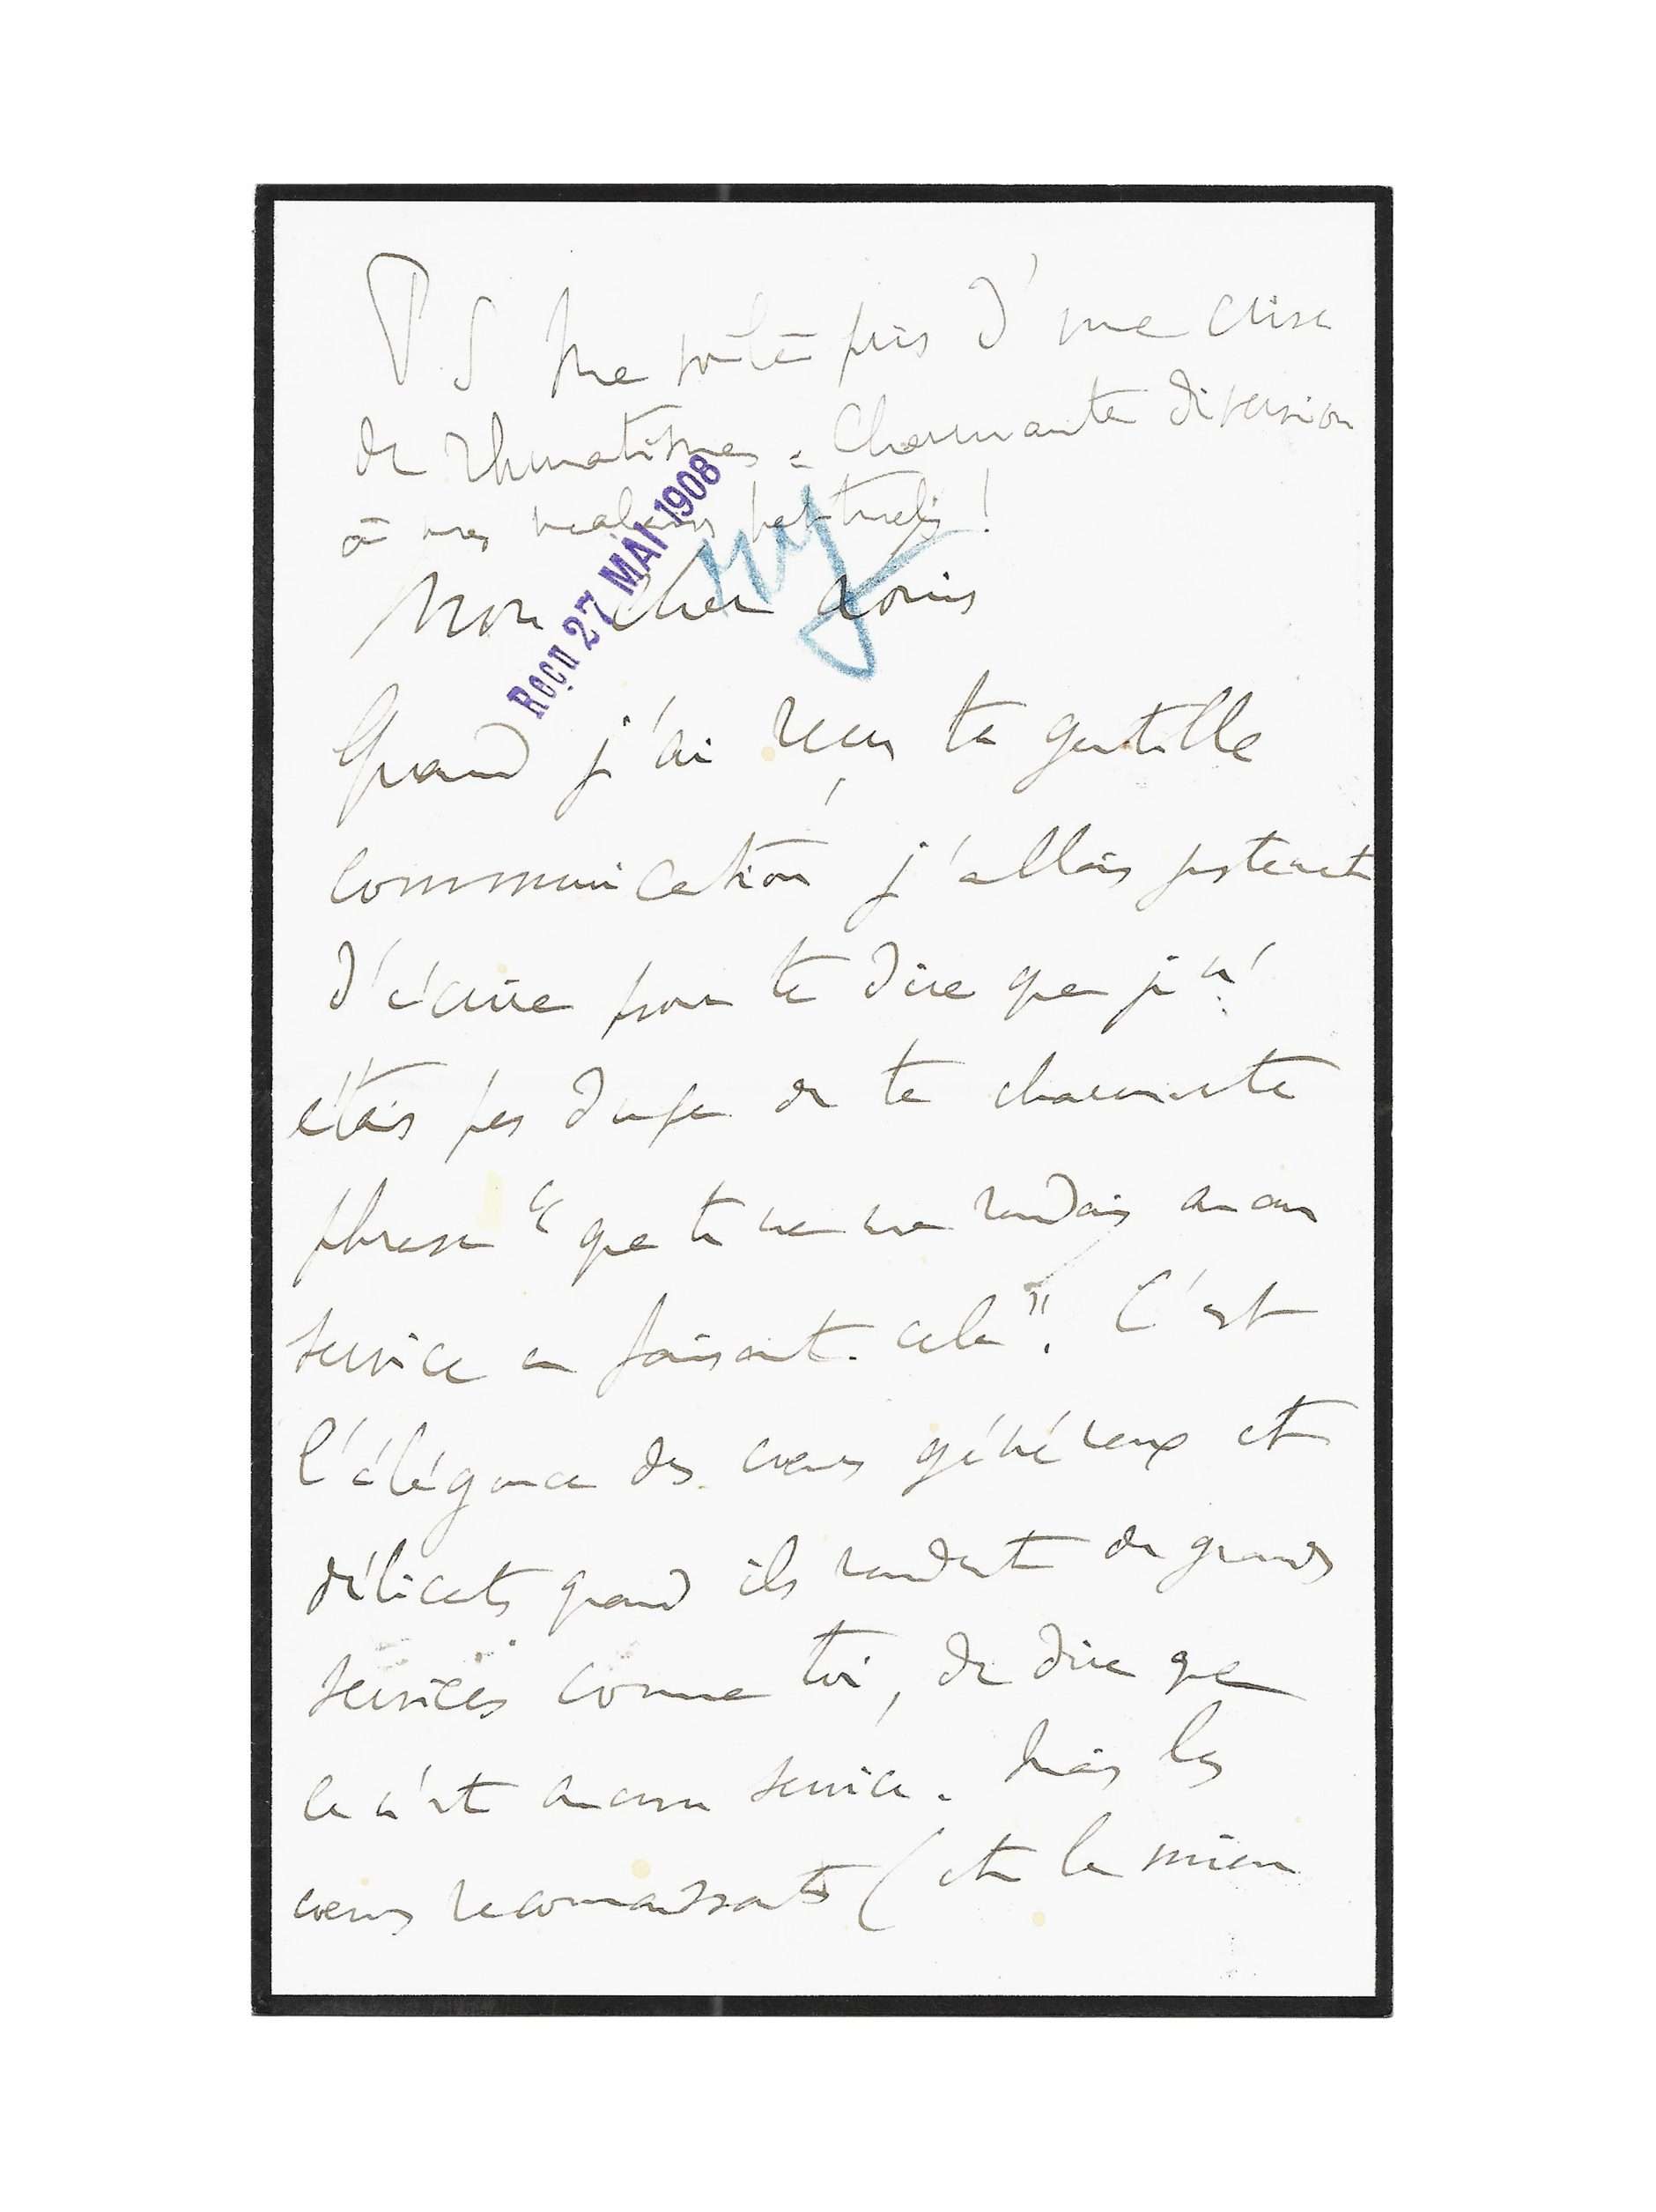 PS Me voilà pris d'une crise
de rhumatismes. Charmante diversion
à mes malaises perpétuels !
Reçu 27 MAI 1908
Mon cher Louis
Quand j'ai reçu ta gentille
communication j'allais justement
t'écrire pour te dire que je n'
étais pas dupe de ta charmante
phrase "que tu ne me rendais aucun
service en faisant cela". C'est
l'élégance des cœurs généreux et
délicats quand ils rendent de grands
services comme toi, de dire que
ce n'est aucun service. Mais les
cœurs reconnaissants (et le mien